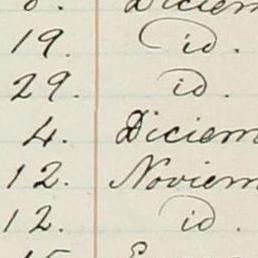 19. id.
29. id.
4. Diciem
12. Noviem
12. id.